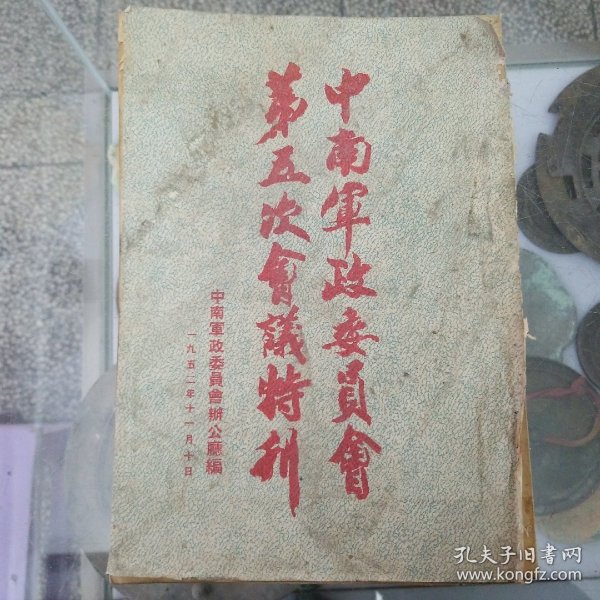 中南軍政委員會
第五次會議特刊
中南軍政委員會辦公廳編
一九五二年十一月十日
孔夫子旧書网
www.kongfz.com